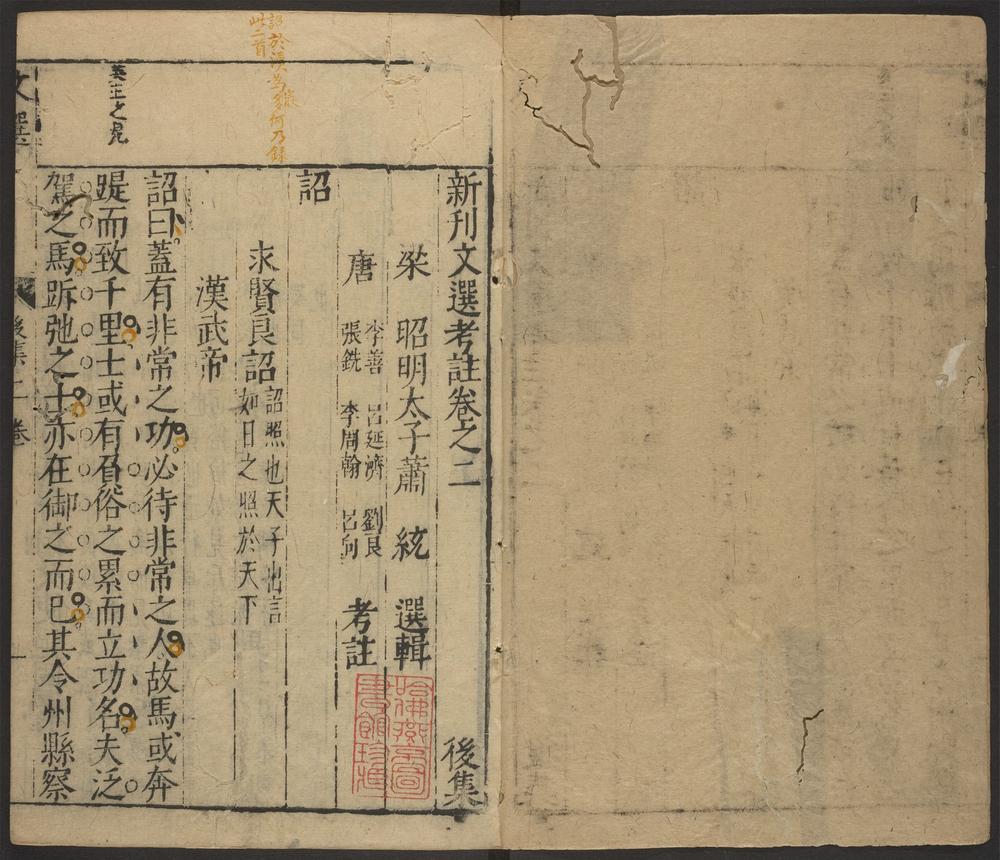 新刊文選考註卷之二 後集
梁 昭明太子蕭 統 選輯
唐 李善 呂延濟 劉良
張銑 李周翰 呂向 考註
詔
求賢良詔 詔照也天子出言
如日之照於天下
漢武帝
詔曰蓋有非常之功必待非常之人故馬或奔
踶而致千里士或有負俗之累而立功名夫泛
駕之馬跅弛之士亦在御之而已其令州縣察
文選
後集二卷
一
英主之見
詔於漢為
何乃錄
此二首
哈佛燕京圖
書館珍藏